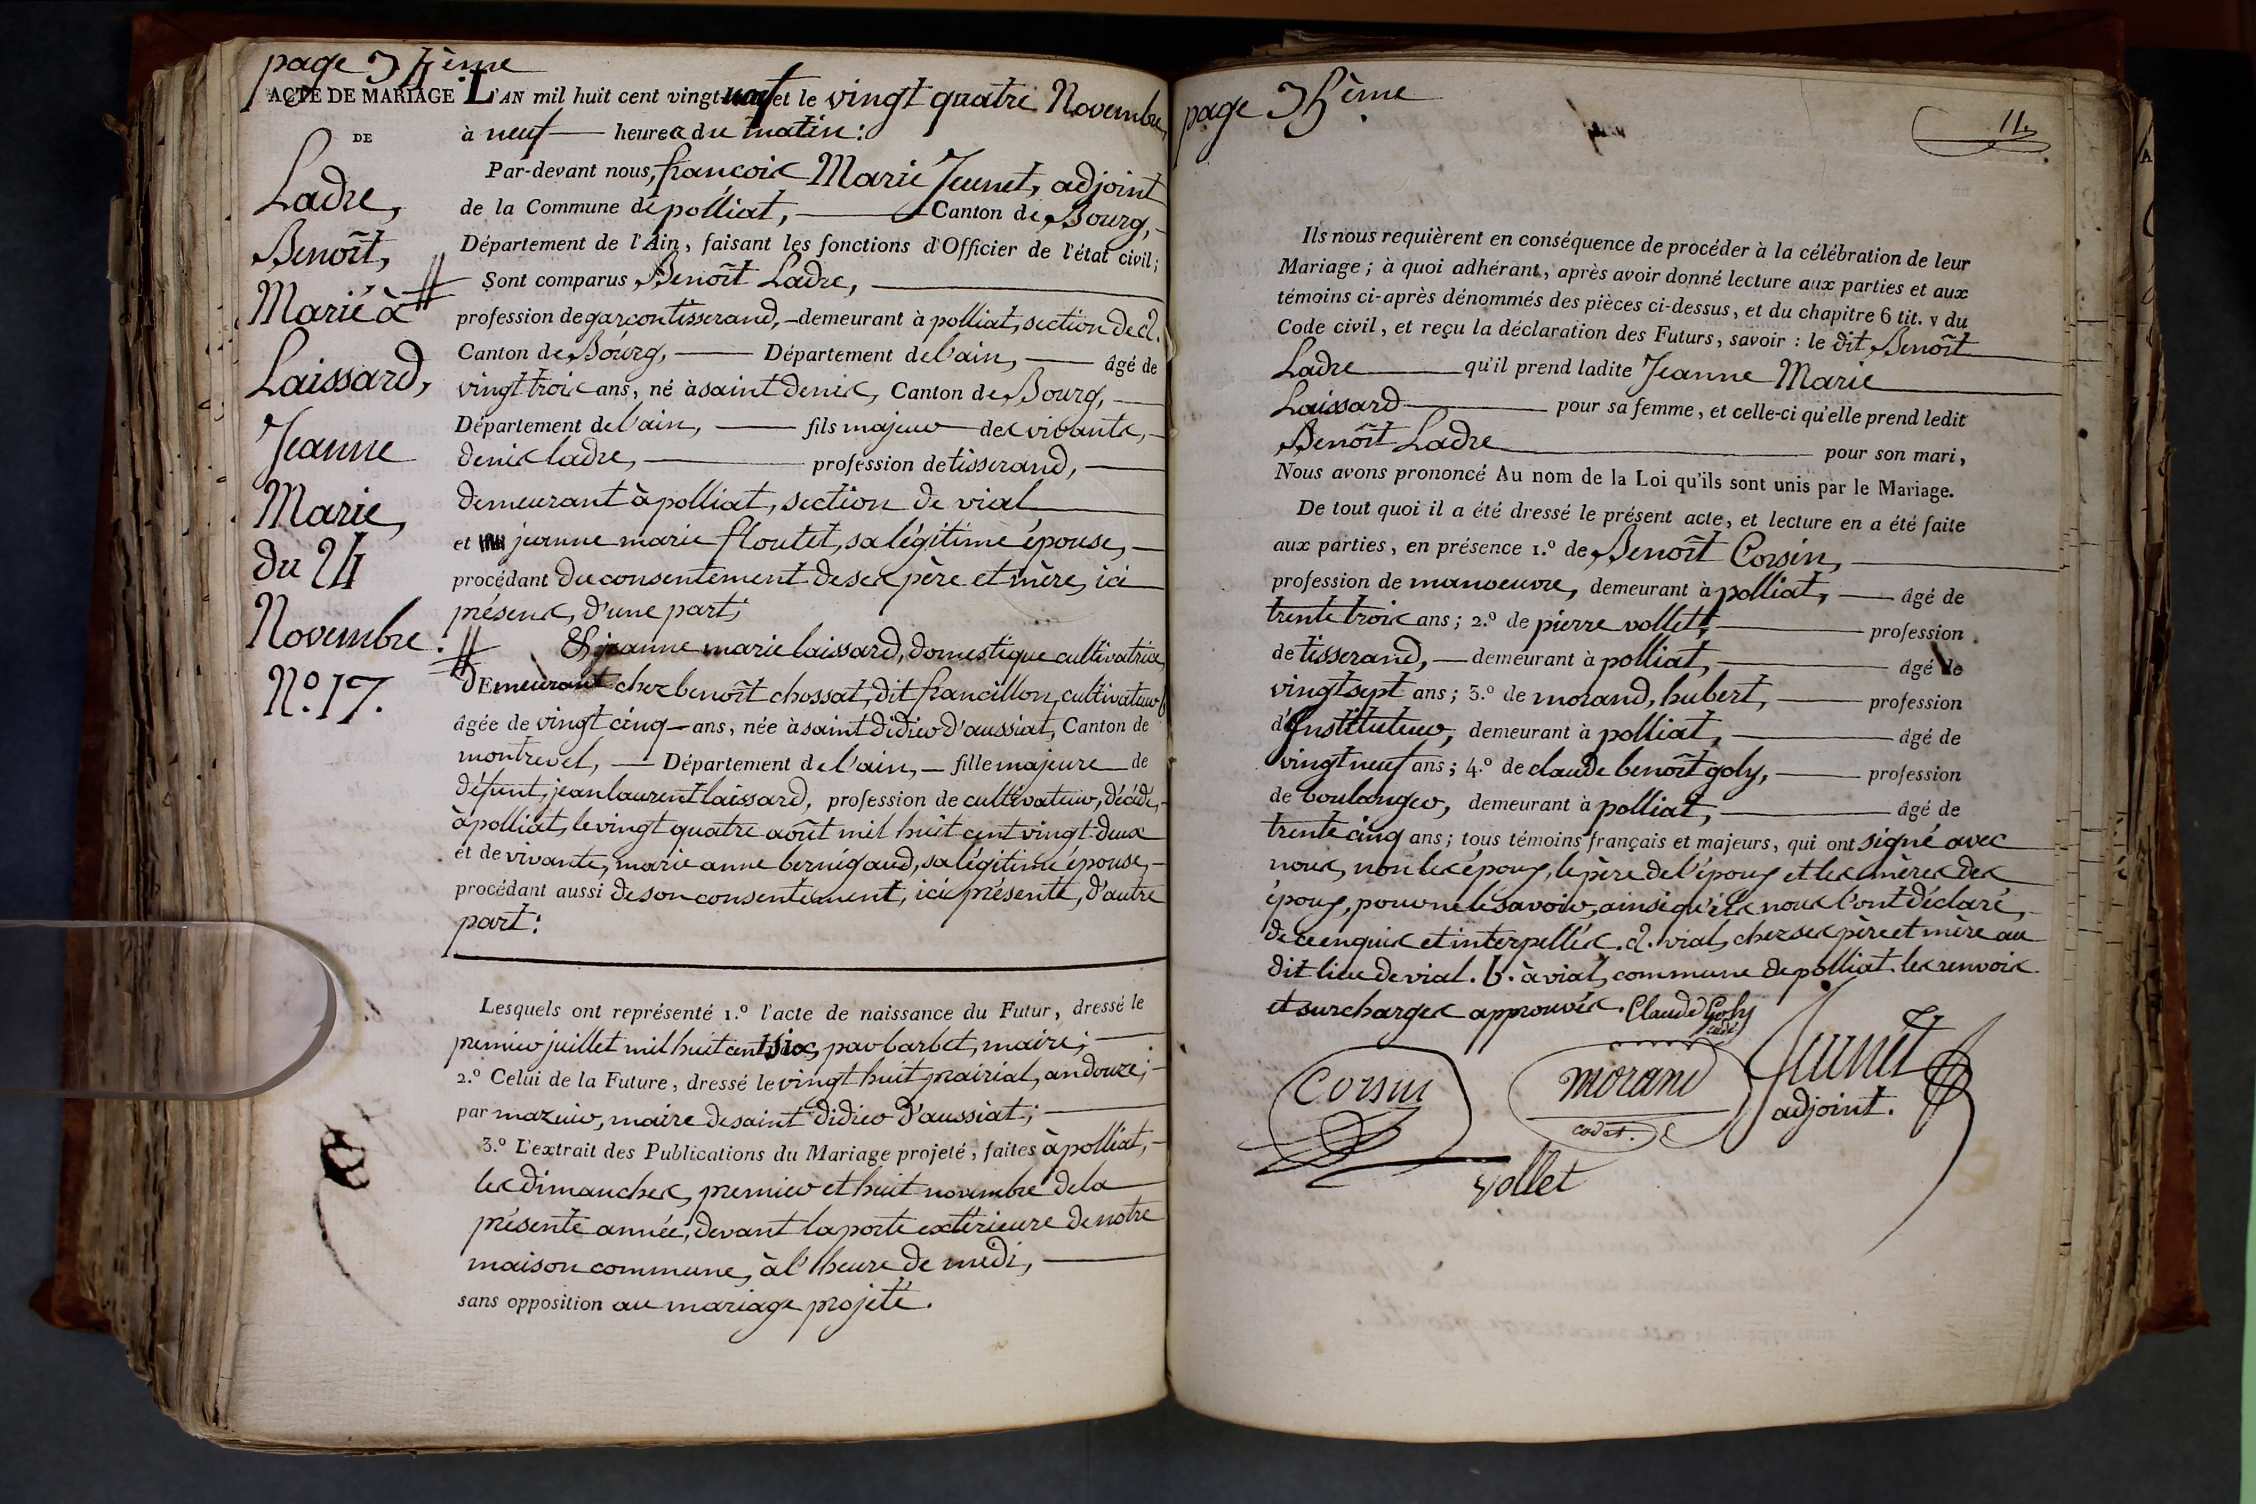 page 34ème
ACTE DE MARIAGE
DE
Ladre,
Benoît,
Marié à
Laissard,
Jeanne
Marie,
du 24
Novembre.
N.º 17.
L'AN mil huit cent vingt-neuf et le vingt quatre Novembre,
à neuf heures du matin:
Par-devant nous, francois Marie Jeunet, adjoint
de la Commune de polliat, Canton de Bourg,
Département de l'Ain, faisant les fonctions d'Officier de l'état civil;
Sont comparus Benoît Ladre,
profession de garçon tisserand, demeurant à polliat, section de a.
Canton de Bourg, Département de l'ain, âgé de
vingt trois ans, né à saint denis, Canton de Bourg,
Département de l'ain, fils majeur des vivants,
denis ladre, profession de tisserand,
demeurant à polliat, section de vial
et jeanne marie floutet, sa légitime épouse,
procédant du consentement de ses père et mère, ici
présens, d'une part;
Et jeanne marie laissard, domestique cultivatrice,
dEmeurant chez benoît chossat, dit francillon, cultivateur b
âgée de vingt cinq ans, née à saint didier d'aussiat, Canton de
montrevel, Département de l'ain, fille majeure de
défunt, jean laurent laissard, profession de cultivateur, décédé,
à polliat, le vingt quatre août mil huit cent vingt-deux
et de vivante, marie anne bernigaud, sa légitime épouse,
procédant aussi de son consentement, ici présente, d'autre
part:
Lesquels ont représenté 1.º l'acte de naissance du Futur, dressé le
premier juillet mil huit cent six, par barbet, maire;
2.º Celui de la Future, dressé le vingt huit prairial, an douze;
par mazuir, maire de saint didier d'aussiat;
3.º L'extrait des Publications du Mariage projeté, faites à polliat,
les dimanches, premier et huit novembre de la
présente année, devant la porte extérieure de notre
maison commune, à l'heure de midi,
sans opposition au mariage projeté.
page 35ème
Ils nous requièrent en conséquence de procéder à la célébration de leur
Mariage; à quoi adhérant, après avoir donné lecture aux parties et aux
témoins ci-après dénommés des pièces ci-dessus, et du chapitre 6 tit. v du
Code civil, et reçu la déclaration des Futurs, savoir: le dit Benoît
Ladre qu'il prend ladite Jeanne Marie
Laissard pour sa femme, et celle-ci qu'elle prend ledit
Benoît Ladre pour son mari,
Nous avons prononcé Au nom de la Loi qu'ils sont unis par le Mariage.
De tout quoi il a été dressé le présent acte, et lecture en a été faite
aux parties, en présence 1.º de Benoît Corsin,
profession de manoeuvre, demeurant à polliat, âgé de
trente trois ans; 2.º de pierre vollet, profession
de tisserand, demeurant à polliat, âgé de
vingt sept ans; 3.º de morand, hubert, profession
d'Instituteur, demeurant à polliat, âgé de
vingt neuf ans; 4.º de claude benoît goly, profession
de boulanger, demeurant à polliat, âgé de
trente cinq ans; tous témoins français et majeurs, qui ont signé avec
nous, non les époux, le père de l'époux et les mères des
époux, pour ne le savoir, ainsi qu'ils nous l'ont déclaré,
de ce enquis et interpellés. a. vial, chez ses père et mère au
dit lieu de vial. b. à vial, commune de polliat. les renvois
et surcharges approuvés. Claude Goly
cadet
Corsin
morand
cadet.
Jeunet
adjoint.
vollet